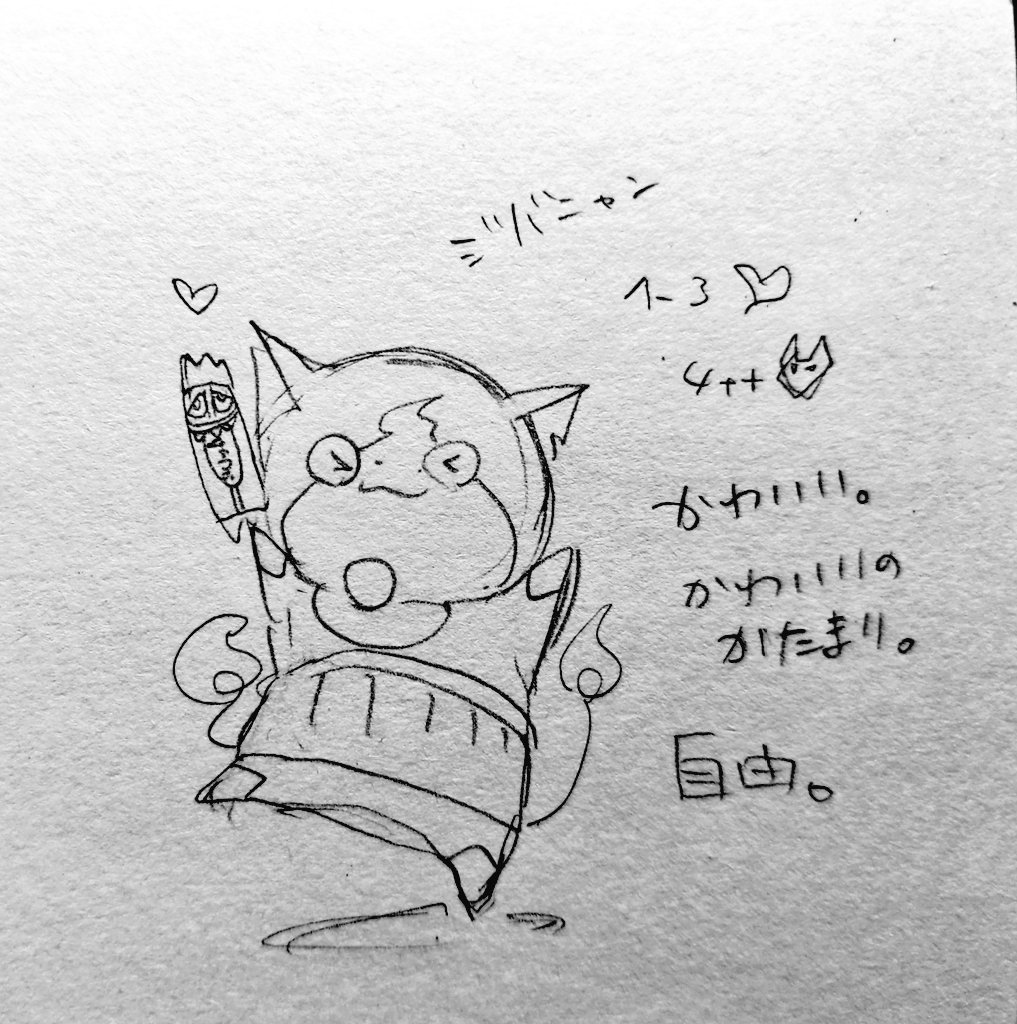 ジバニャン
1-3
4++
かわいい。
かわいいの
かたまり。
自由。